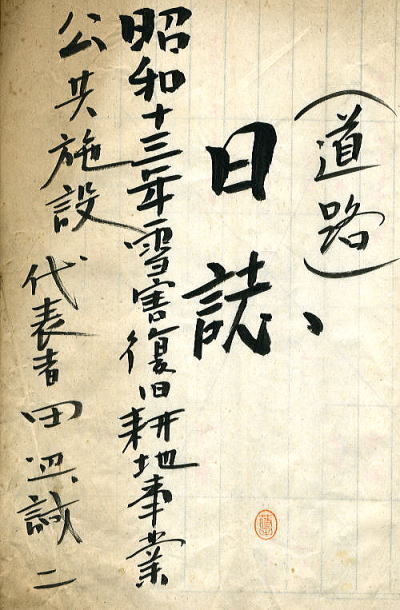 (道路)
日誌、
昭和十三年雪害復旧耕地事業
公共施設 代表者 田辺誠二